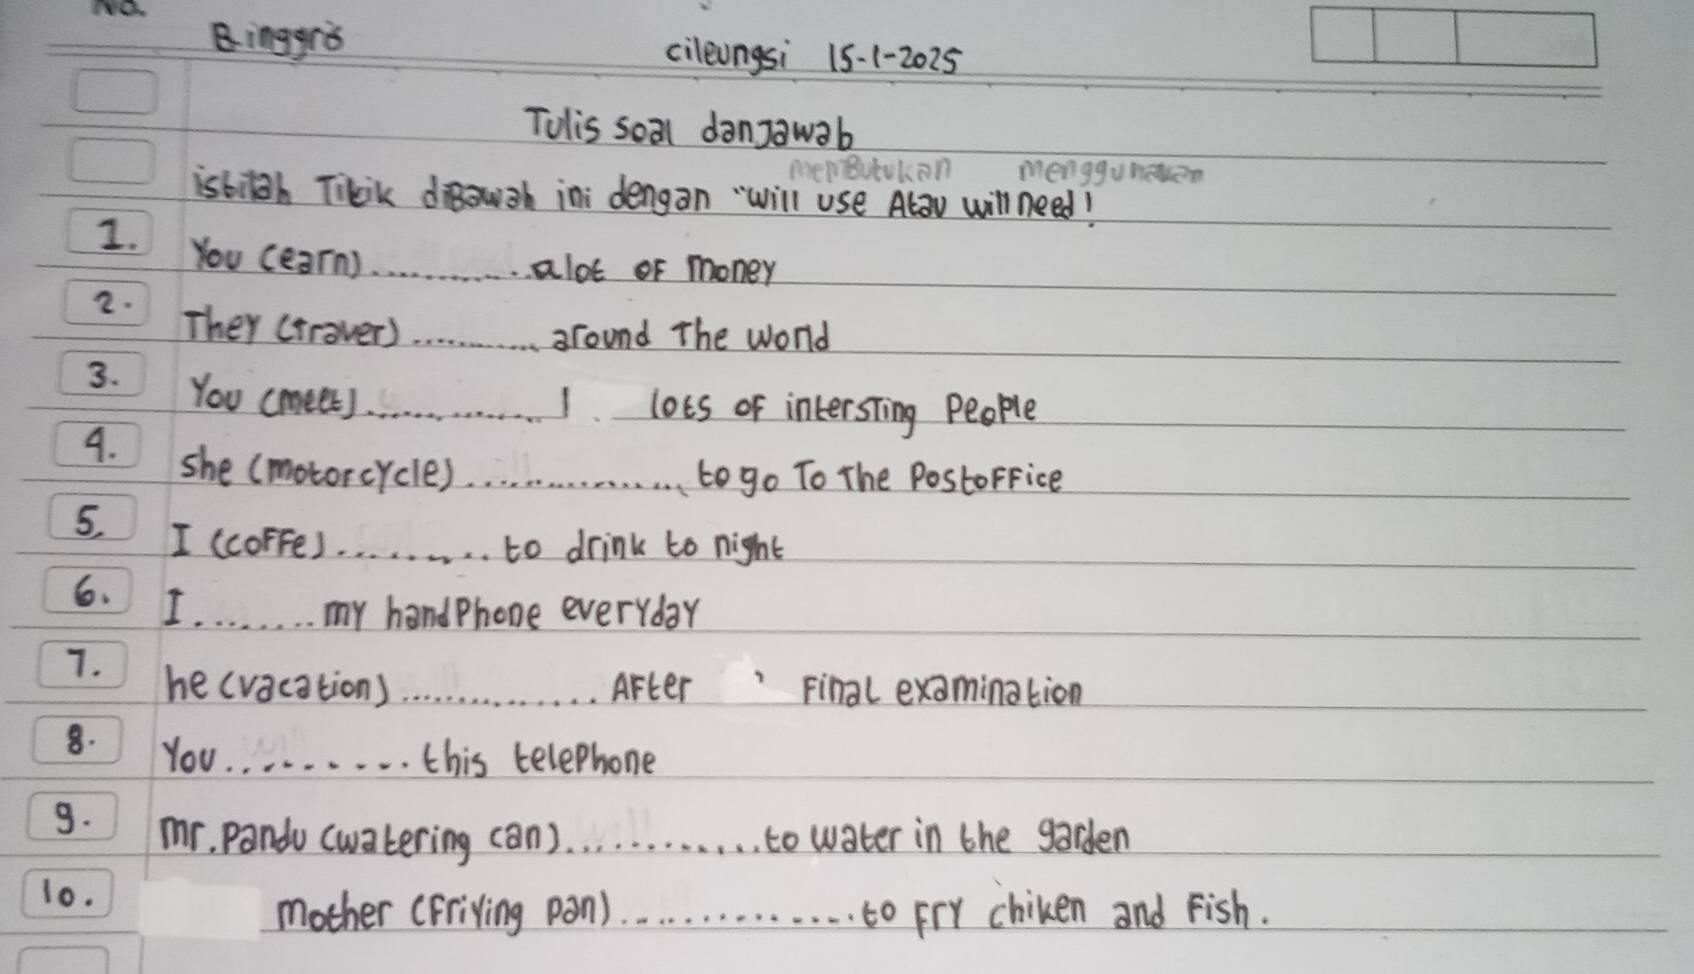 No.
B. inggris
cileungsi 15-1-2025
Tulis soal dan Jawab
memButukan menggunakan
istilah Titik diBawah ini dengan "will use Atau will need!
1. You (earn)............alot of money
2. They (traver)........... around The world
3. You (meet)............... lots of intersTing People
4. she (motorcycle)................ to go To The PostoFFice
5. I (coFFe)........... to drink to night
6. I......... my handPhone everyday
7. he (vacation)............... AFter Final examination
8. You.......... this telephone
9. mr. Pandu (watering can)............. to water in the garden
10. mother (Friying pan)............... to Fry chiken and Fish.